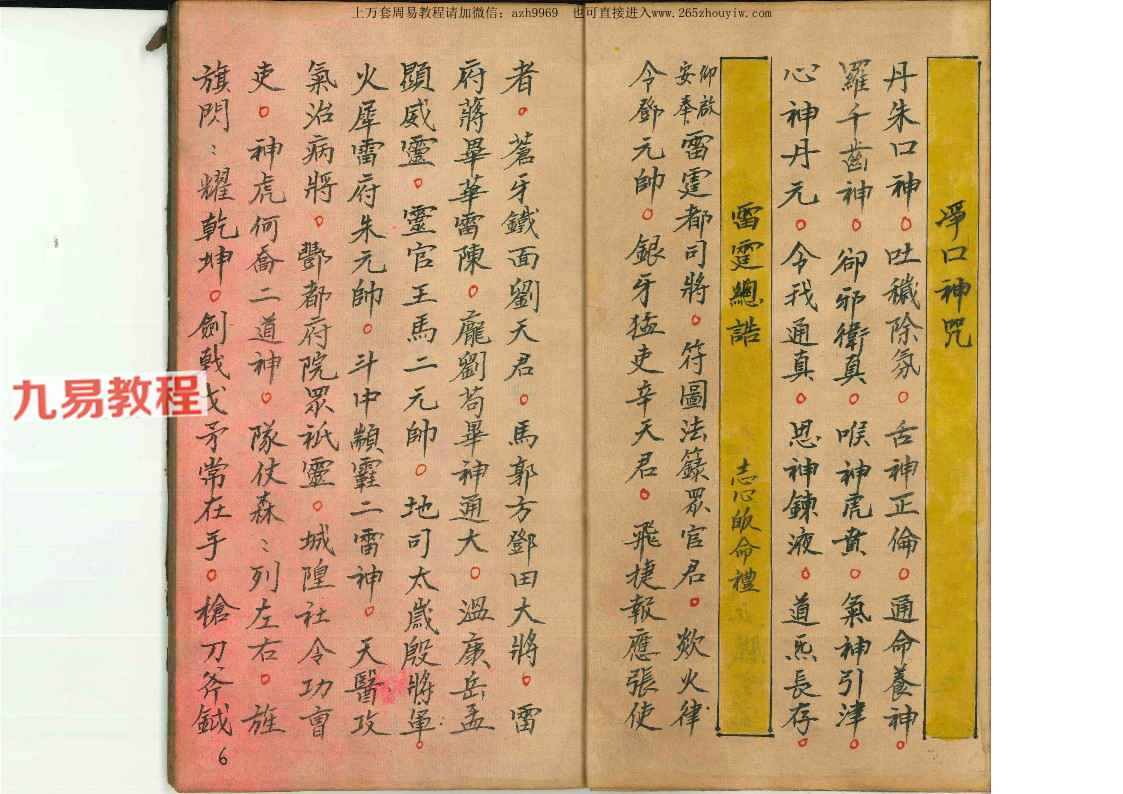 上万套周易教程请加微信：azh9969　也可直接进入www.265zhouyiw.com
淨口神咒
丹朱口神。吐穢除氛。舌神正倫。通命養神。
羅千齒神。卻邪衛真。喉神虎賁。氣神引津。
心神丹元。令我通真。思神鍊液。道炁長存。
雷霆總誥　志心皈命禮
仰啟
安奉
雷霆都司將。符圖法籙眾官君。欻火律
令鄧元帥。銀牙猛吏辛天君。飛捷報應張使
者。蒼牙鐵面劉天君。馬郭方鄧田大將。雷
府蔣畢華雷陳。龐劉苟畢神通大。溫康岳孟
顯威靈。靈官王馬二元帥。地司太歲殷將軍。
火犀雷府朱元帥。斗中顓霐二雷神。天醫攻
氣治病將。酆都府院眾祇靈。城隍社令功曹
吏。神虎何喬二道神。隊仗森:列左右。旌
旗閃:耀乾坤。劍戟戈矛常在手。槍刀斧鉞
6
九易教程